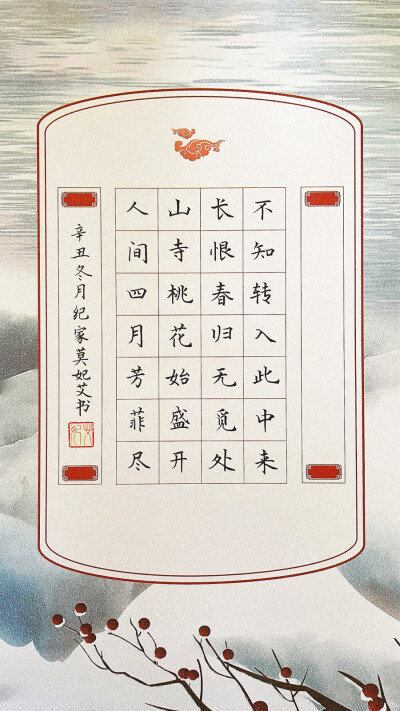 人间四月芳菲尽
山寺桃花始盛开
长恨春归无觅处
不知转入此中来
辛丑冬月纪家莫妃艾书